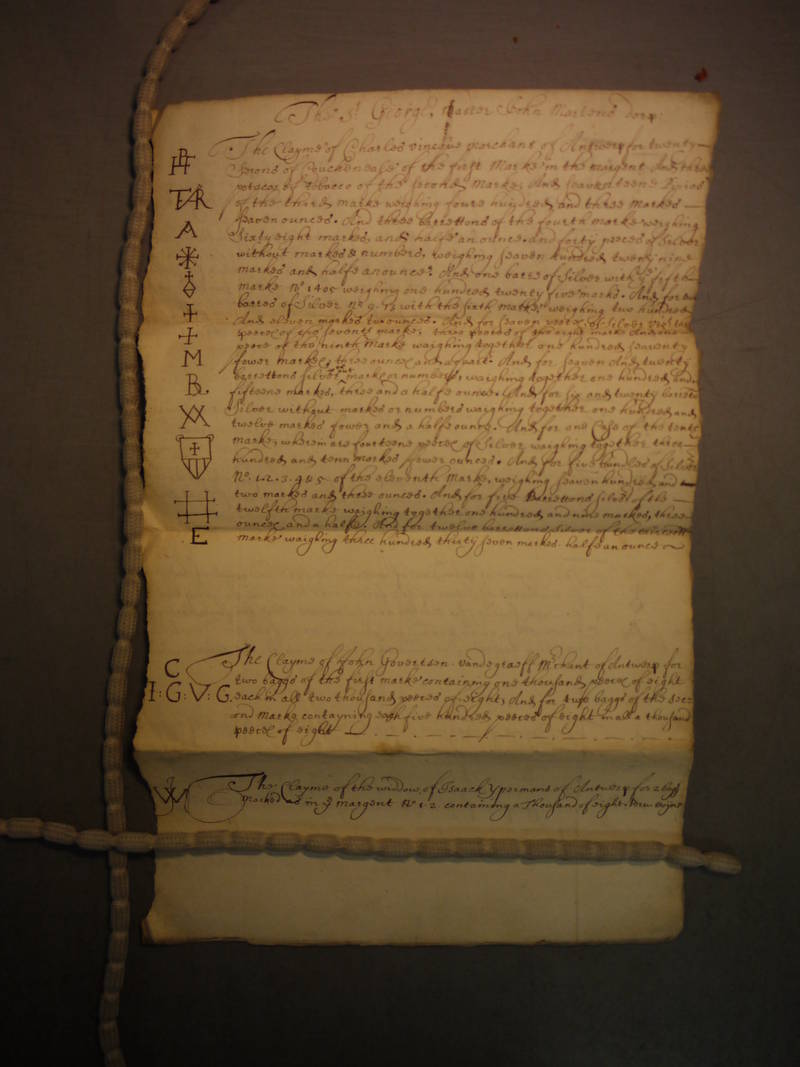 The St. George, Master John Martens dorp:
The Clayme of Charles vincque merchant of Antwerp for twenty
Serons of Couchenease of the first Marke in the margent And three
potacoes of Tobacco of the second Marke, And seaventeene
of the third marke weighing foure hundred and three markes
seaven ounces. And three barretons of the fourth marke weighing
Sixty eight markes, and halfe an ounce. And forty peeces of Silver
without markes & numbers, weighing seaven hundred twenty nine
markes and halfe an ounce. And one barre of Silver with the fifth
marke No. 1405 weighing one hundred twenty five marke. And for two
barres of Silver No. 9. 13 with the sixth marke weighing two hundred
And eleven markes two ounces. And for seaven peeces of Silver
peeces of the seventh marke, three peeces of the eight marke And one
peece of the ninth Marke waighing together one hundred seaventy
fower markes, three ounces and a halfe. And for seaven and twenty
barrettons silver marke or number, weighing together one hundred and
fifteene markes, three and a halfe ounce. And for six and twenty barres
Silver without markes or numbers waighing together one hundred and
twelve markes fower and a halfe ounce. And for one Case of the tenth
marke, wherein are fourteene peeces of Silver waighing together three
hundred and tenn markes fower ounces. And for five bundles of Silver
No. 1. 2. 3. 4 & 5. of the eleventh Marke, weighing seaven hundred and
two markes and three ounces. And for five Barrettons Silver of the
twelfth marke waighing together one hundred and nine markes, three
ounces and a halfe. And for twelve barrettons silver of the
marke waighing three hundred thirty seven markes halfe an ounce
C The Clayme of John Govertsen vande graeff Merchant of Antwerp for
two baggs of the first marke containing one thousand peeces of eight
I: G: V: G. each in all two thousand peeces of eight, And for two baggs of the sec-
ond marke contayning each five hundred peeces of eight in all a thousand
peeces of eight
The Clayme of the widdow of Isaack Ypermans of Antwerp for 2 baggs
marked as in ye margent No. 1 2 containing a Thousand of eight